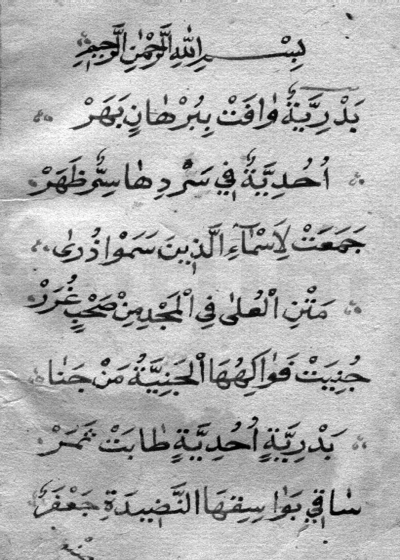 بِسْمِ اللهِ الرَّحْمٰنِ الرَّحِيمِ
بَدْرِيَّةٌ وَافَتْ بِبُرْهَانٍ بَهَرْ
أُحُدِيَّةٌ فِي سَرْدِهَا سِرٌّ ظَهَرْ
جَمَعَتْ لِاَسْمَآءِ الَّذِينَ سَمَوْا ذُرىٰ
مَتْنِ الْعُلىٰ فِي الْمَجْدِ مِنْ صَحْبٍ غُرَرْ
جُنِيَتْ فَوَاكِهُهَا الْجَنِيَّةُ مَنْ جَنَاهْ
بَدْرِيَّةٍ اُحُدِيَّةٍ طَابَتْ ثَمَرْ
سَاقِي بَوَاسِقِهَا النَّضِيدَةِ جَعْفَرٌ